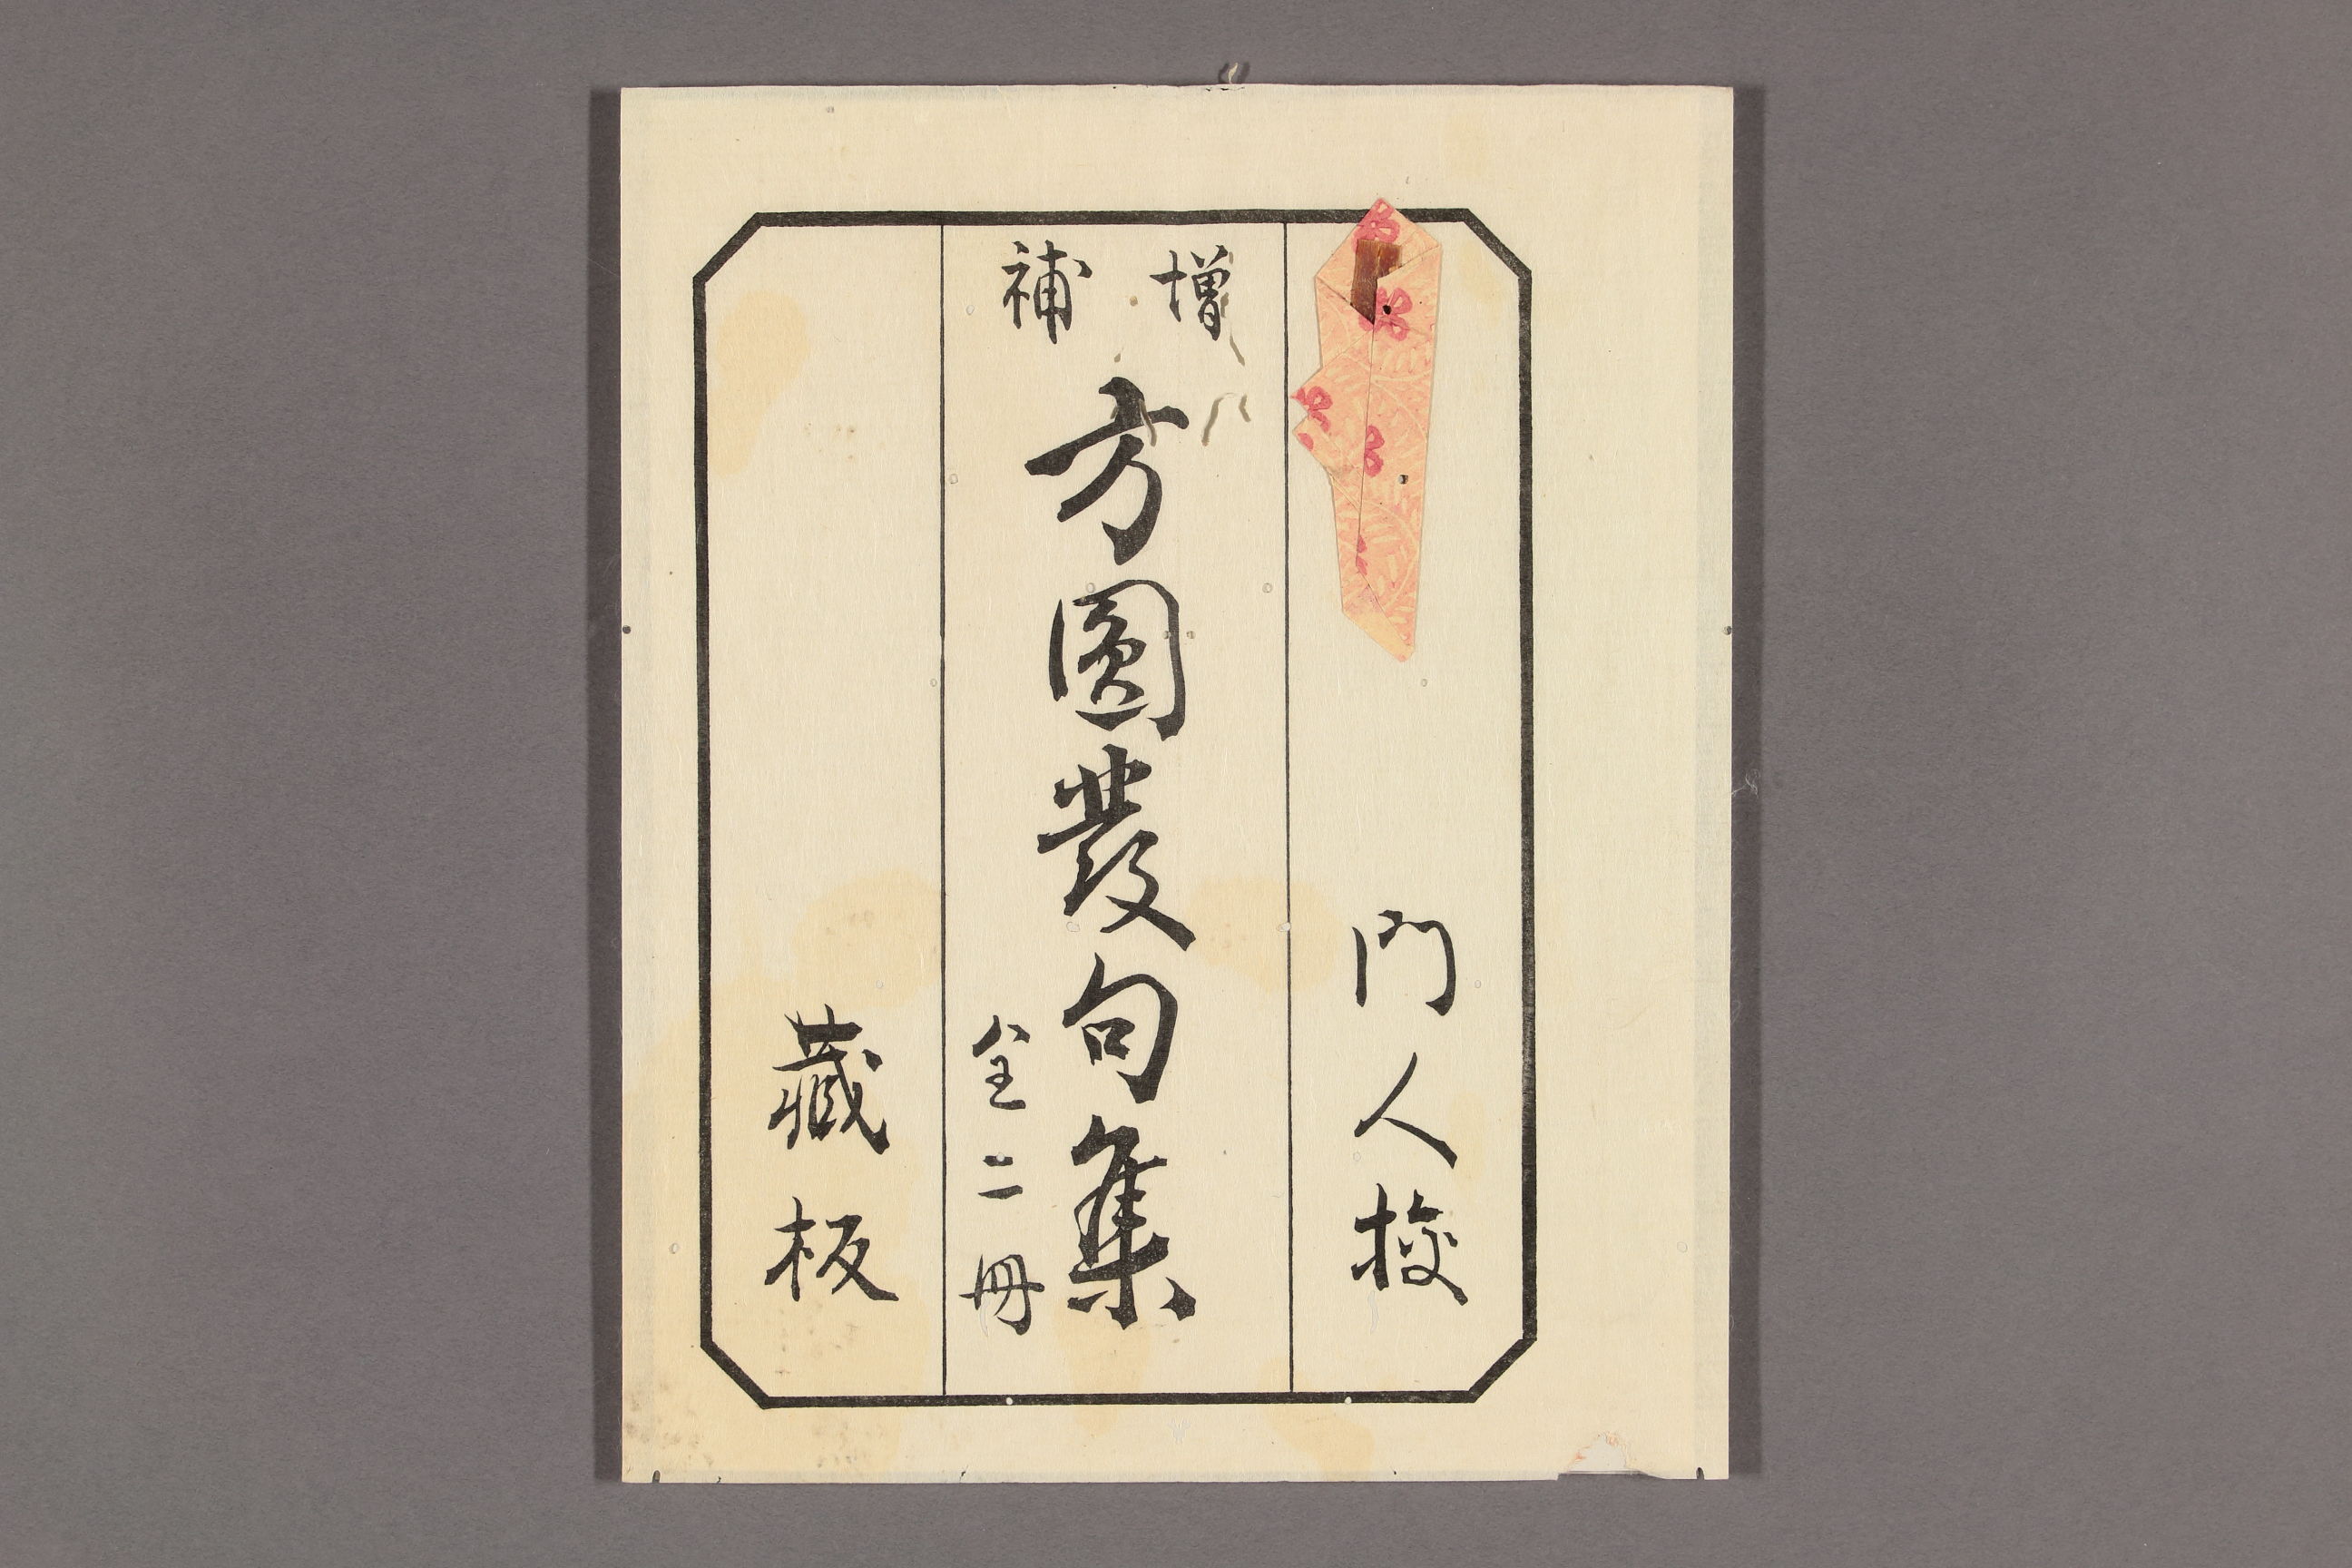 門人挍
増補
方圓發句集
全二冊
藏板